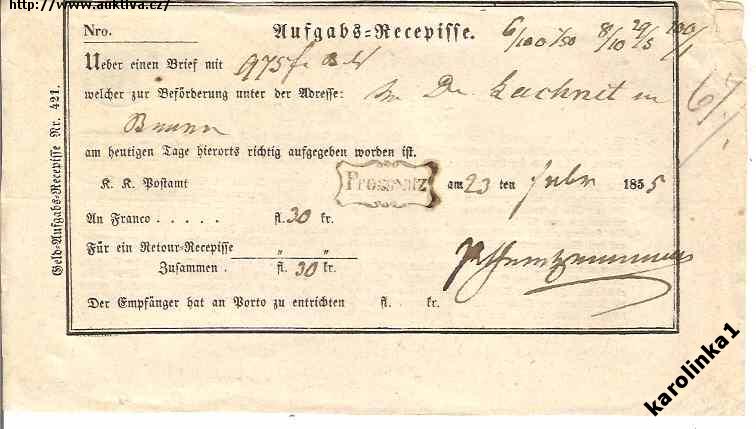 http://www.auktiva.cz/
Nro.
Aufgabs=Recepisse.
6/100 1/50 8/10 29/5 100/1
Ueber einen Brief mit 975 f
welcher zur Beförderung unter der Adresse: An Dr. Lachnit in
Brunn
am heutigen Tage hierorts richtig aufgegeben worden ist.
K. K. Postamt Prossnitz am 23 ten Febr 1855
An Franco . . . . . fl. 30 kr.
Für ein Retour=Recepisse " "
Zusammen . fl. 30 kr.
Der Empfänger hat an Porto zu entrichten fl. . kr.
Geld=Aufgabs=Recepisse Nr. 421.
karolinka1